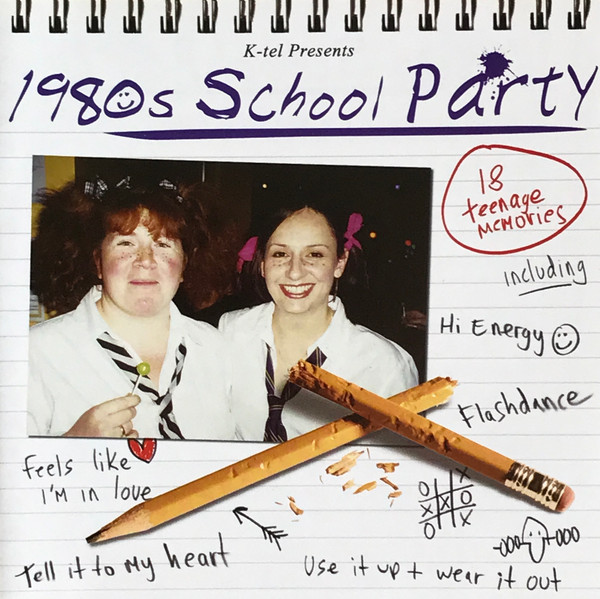 K-tel Presents
1980s School Party
18
teenage
memories
including
Hi Energy
Flashdance
feels like
I'm in love
Tell it to my heart
Use it up + wear it out
X
O X O
X X X
O